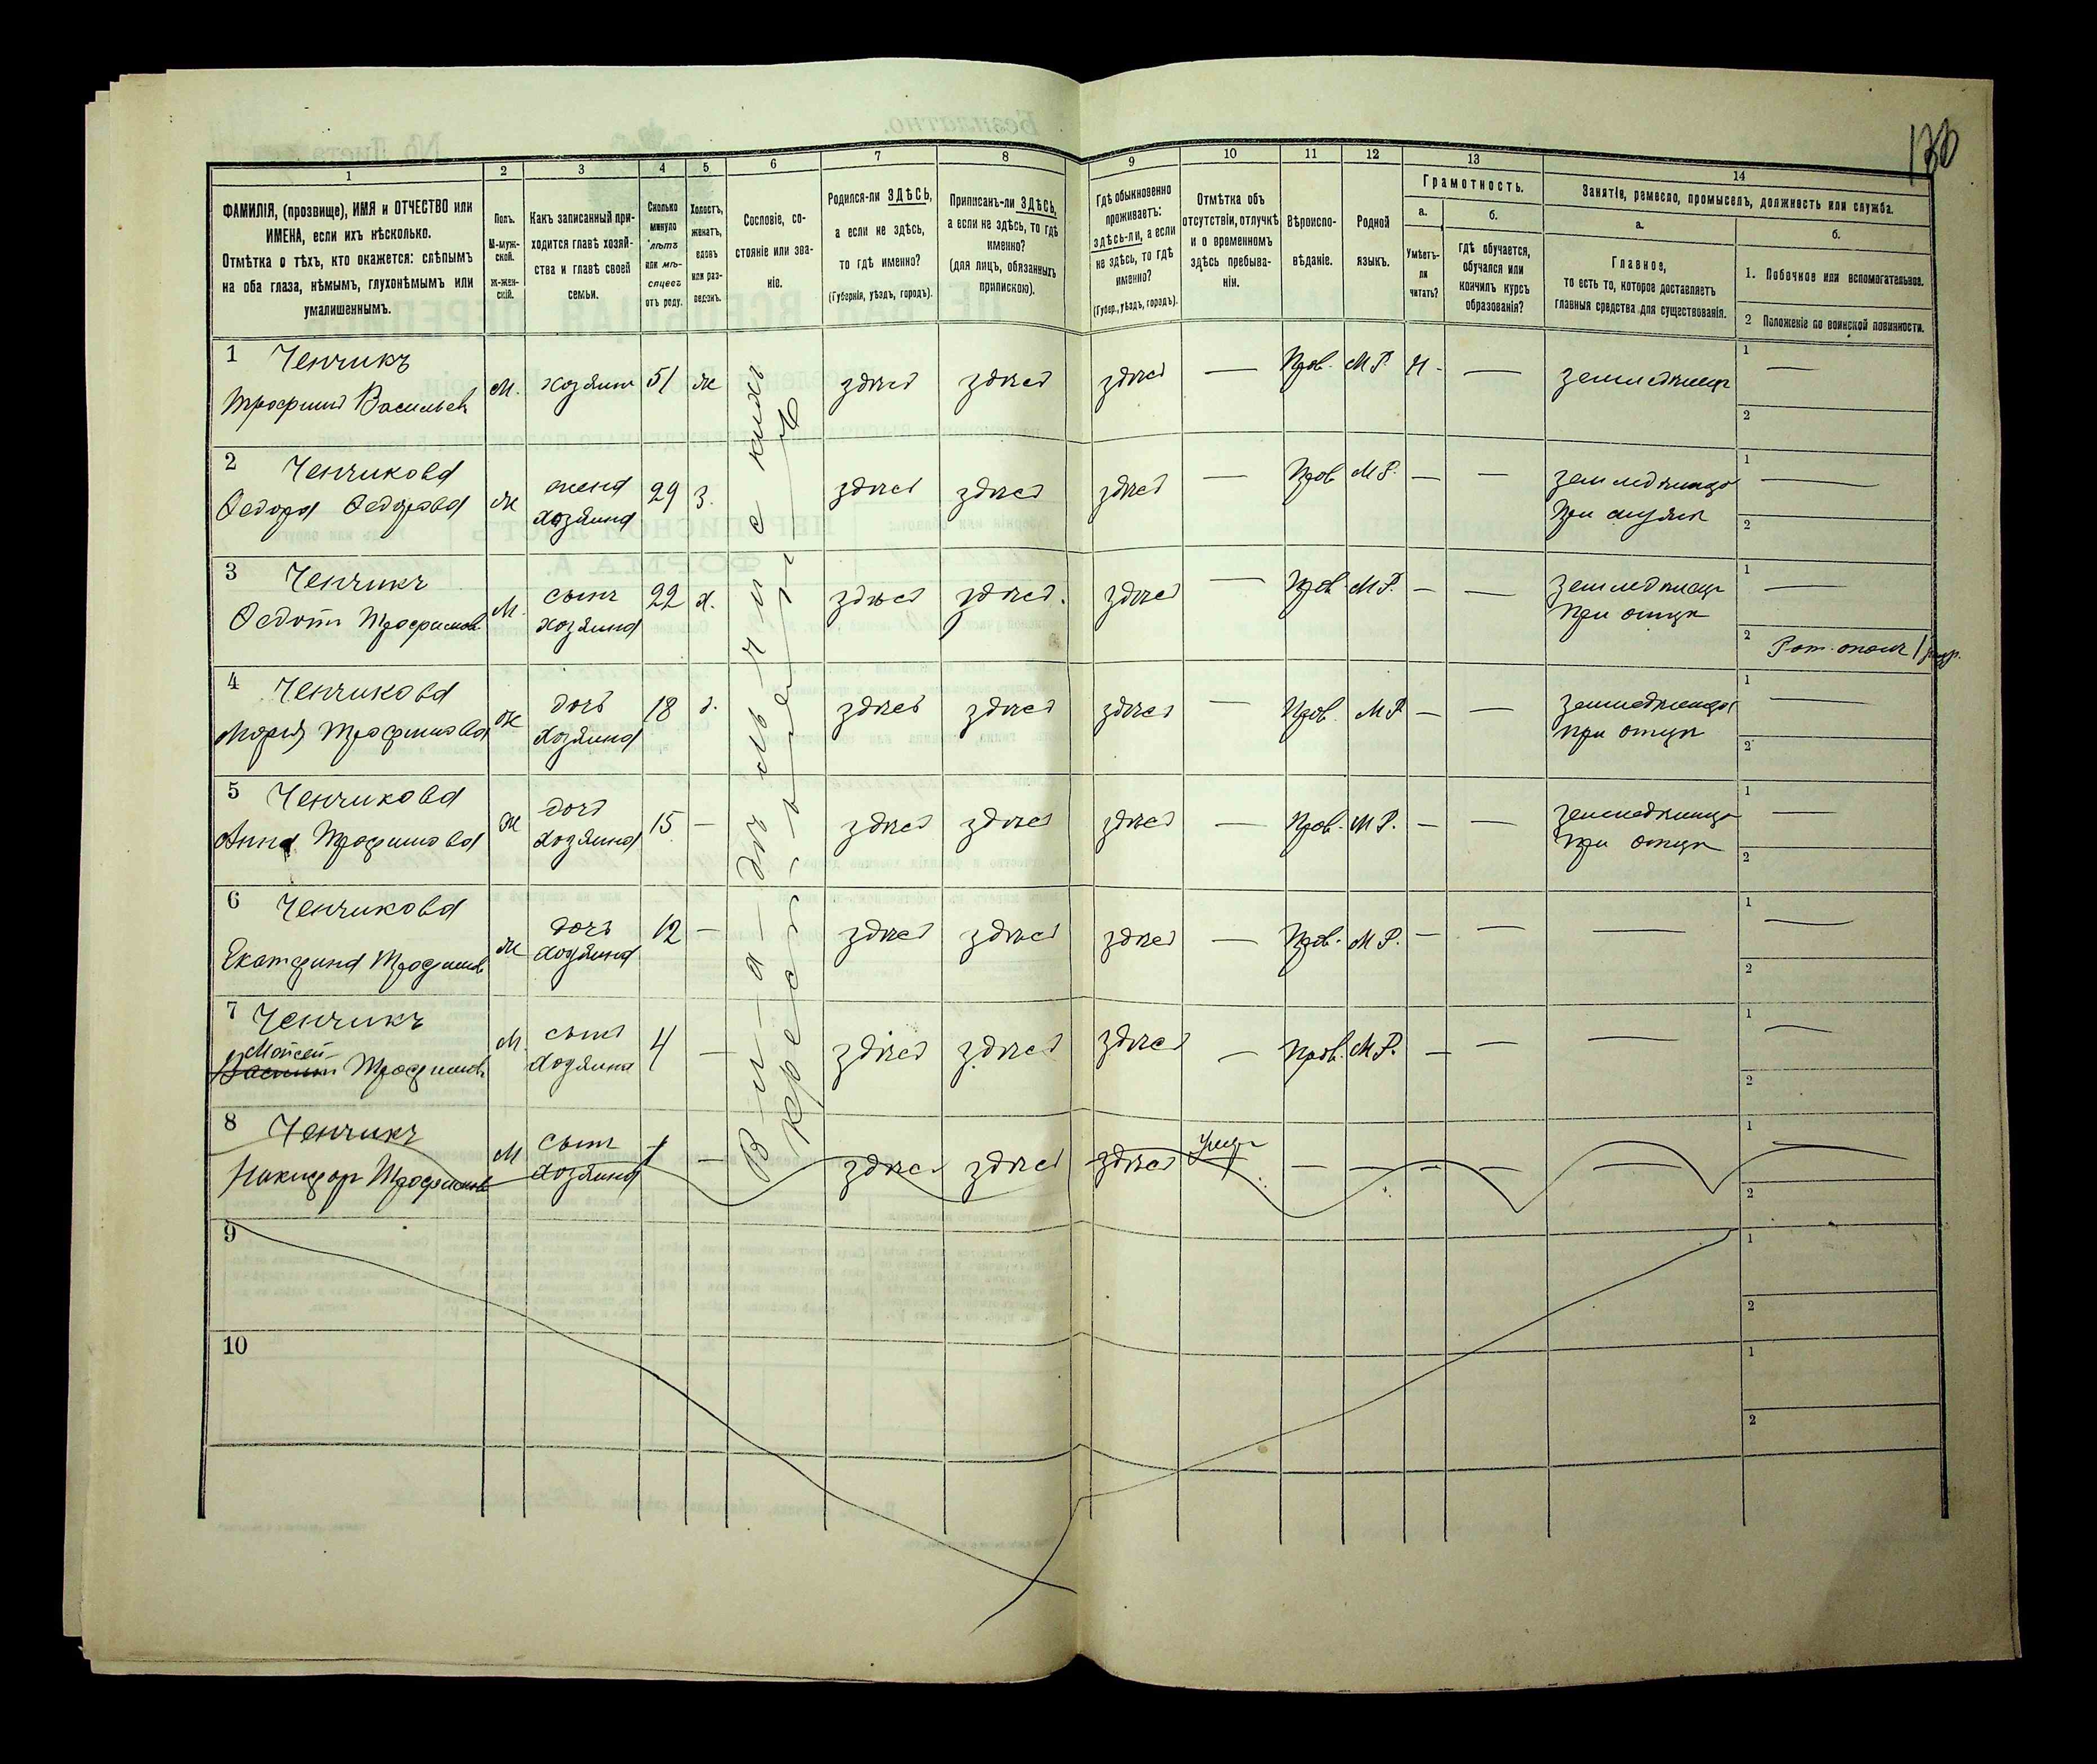 130
1
2
3
4
5
6
7
8
9
10
11
12
13
14
ФАМИЛІЯ, (прозвище), ИМЯ и ОТЧЕСТВО или
ИМЕНА, если ихъ нѣсколько.
Отмѣтка о тѣхъ, кто окажется: слѣпымъ
на оба глаза, нѣмымъ, глухонѣмымъ или
умалишеннымъ.
Полъ.
М-муж-
ской.
Ж-жен-
скій.
Какъ записанный при-
ходится главѣ хозяй-
ства и главѣ своей
семьи.
Сколько
минуло
лѣтъ
или мѣ-
сяцевъ
отъ роду.
Холостъ,
женатъ,
вдовъ
или раз-
веденъ.
Сословіе, со-
стояніе или зва-
ніе.
Родился-ли ЗДѢСЬ,
а если не здѣсь,
то гдѣ именно?
(Губернія, уѣздъ, городъ).
Приписанъ-ли ЗДѢСЬ,
а если не здѣсь, то гдѣ
именно?
(для лицъ, обязанныхъ
припискою).
Гдѣ обыкновенно
проживаетъ:
здѣсь-ли, а если
не здѣсь, то гдѣ
именно?
(Губер., уѣздъ, городъ).
Отмѣтка объ
отсутствіи, отлучкѣ
и о временномъ
здѣсь пребыва-
ніи.
Вѣроиспо-
вѣданіе.
Родной
языкъ.
Грамотность.
а.
Умѣетъ-
ли
читать?
б.
гдѣ обучается,
обучался или
кончилъ курсъ
образованія?
Занятія, ремесло, промыселъ, должность или служба.
а.
Главное,
то есть то, которое доставляетъ
главныя средства для существованія.
б.
1. Побочное или вспомогательное.
2 Положеніе по воинской повинности.
1 Ченчикъ
Трофимъ Васильев
М. хозяинъ 51 ж здѣсь здѣсь здѣсь — Прав. М Р. н. — земледѣлецъ
1 —
2
2 Ченчикова
Федора Федорова
ж жена
хозяина
29 з. здѣсь здѣсь здѣсь — Прав М Р. — — земледѣлица
при мужѣ
1 —
2
3 Ченчикъ
Федотъ Трофимов
М. сынъ
хозяина
22 х. здѣсь здѣсь. здѣсь — Прав М Р. — — земледѣлецъ
при отцѣ
1 —
2 Рат. опол 1
4 Ченчикова
Марія Трофимова
ж дочь
хозяина
18 д. здѣсь здѣсь здѣсь — Прав. М Р — — земледѣлица
при отцѣ
1 —
2
5 Ченчикова
Анна Трофимова
ж дочь
хозяина
15 — здѣсь здѣсь здѣсь — Прав. М Р. — — земледѣлица
при отцѣ
1 —
2
6 Ченчикова
Екатерина Трофимов
ж дочь
хозяина
12 — здѣсь здѣсь здѣсь — Прав. М Р. — — —
1 —
2
7 Ченчикъ
Мойсей
Василій Трофимовъ
М. сынъ
хозяина
4 — здѣсь здѣсь здѣсь — Прав. М Р. — — —
1 —
2
8 Ченчикъ
Никифоръ Трофимов
М сынъ
хозяина
1 — здѣсь здѣсь здѣсь — — — — —
1
2
9
1
2
10
1
2
крестьянъ